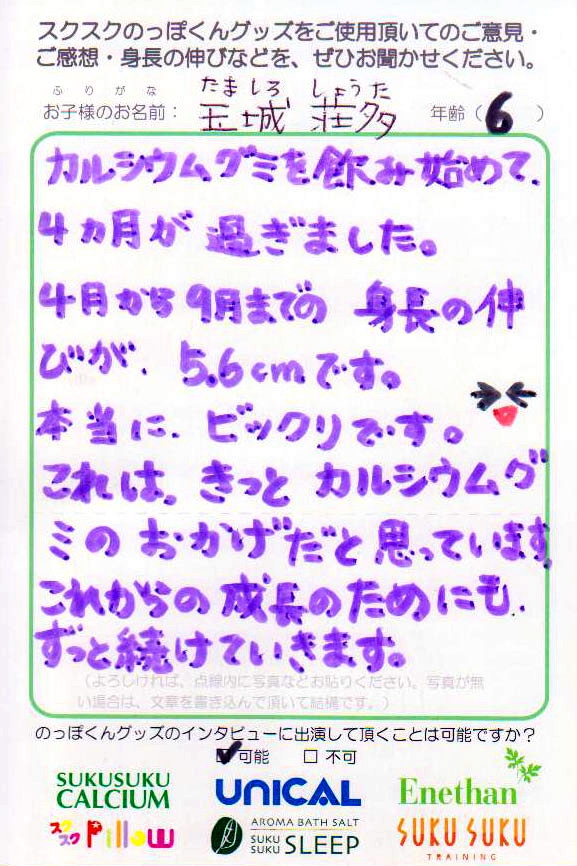 スクスクのっぽくんグッズをご使用頂いてのご意見・
ご感想・身長の伸びなどを、ぜひお聞かせください。
ふりがな たましろ しょうた
お子様のお名前： 玉城 荘多 年齢（6）
カルシウムグミを飲み始めて、
4ヵ月が過ぎました。
4月から9月までの 身長の伸
びが、5.6cmです。
本当に、ビックリです。
これは、きっと カルシウムグ
ミの おかげだと思っています
これからの成長のためにも、
ずっと続けていきます。
（よろしければ、点線内に写真などお貼りください。写真が無
い場合は、文章を書き込んで頂いて結構です。）
のっぽくんグッズのインタビューに出演して頂くことは可能ですか？
可能 不可
SUKUSUKU CALCIUM
UNICAL
Enethan
スクスク Pillow
AROMA BATH SALT
SUKU SUKU SLEEP
SUKU SUKU
TRAINING